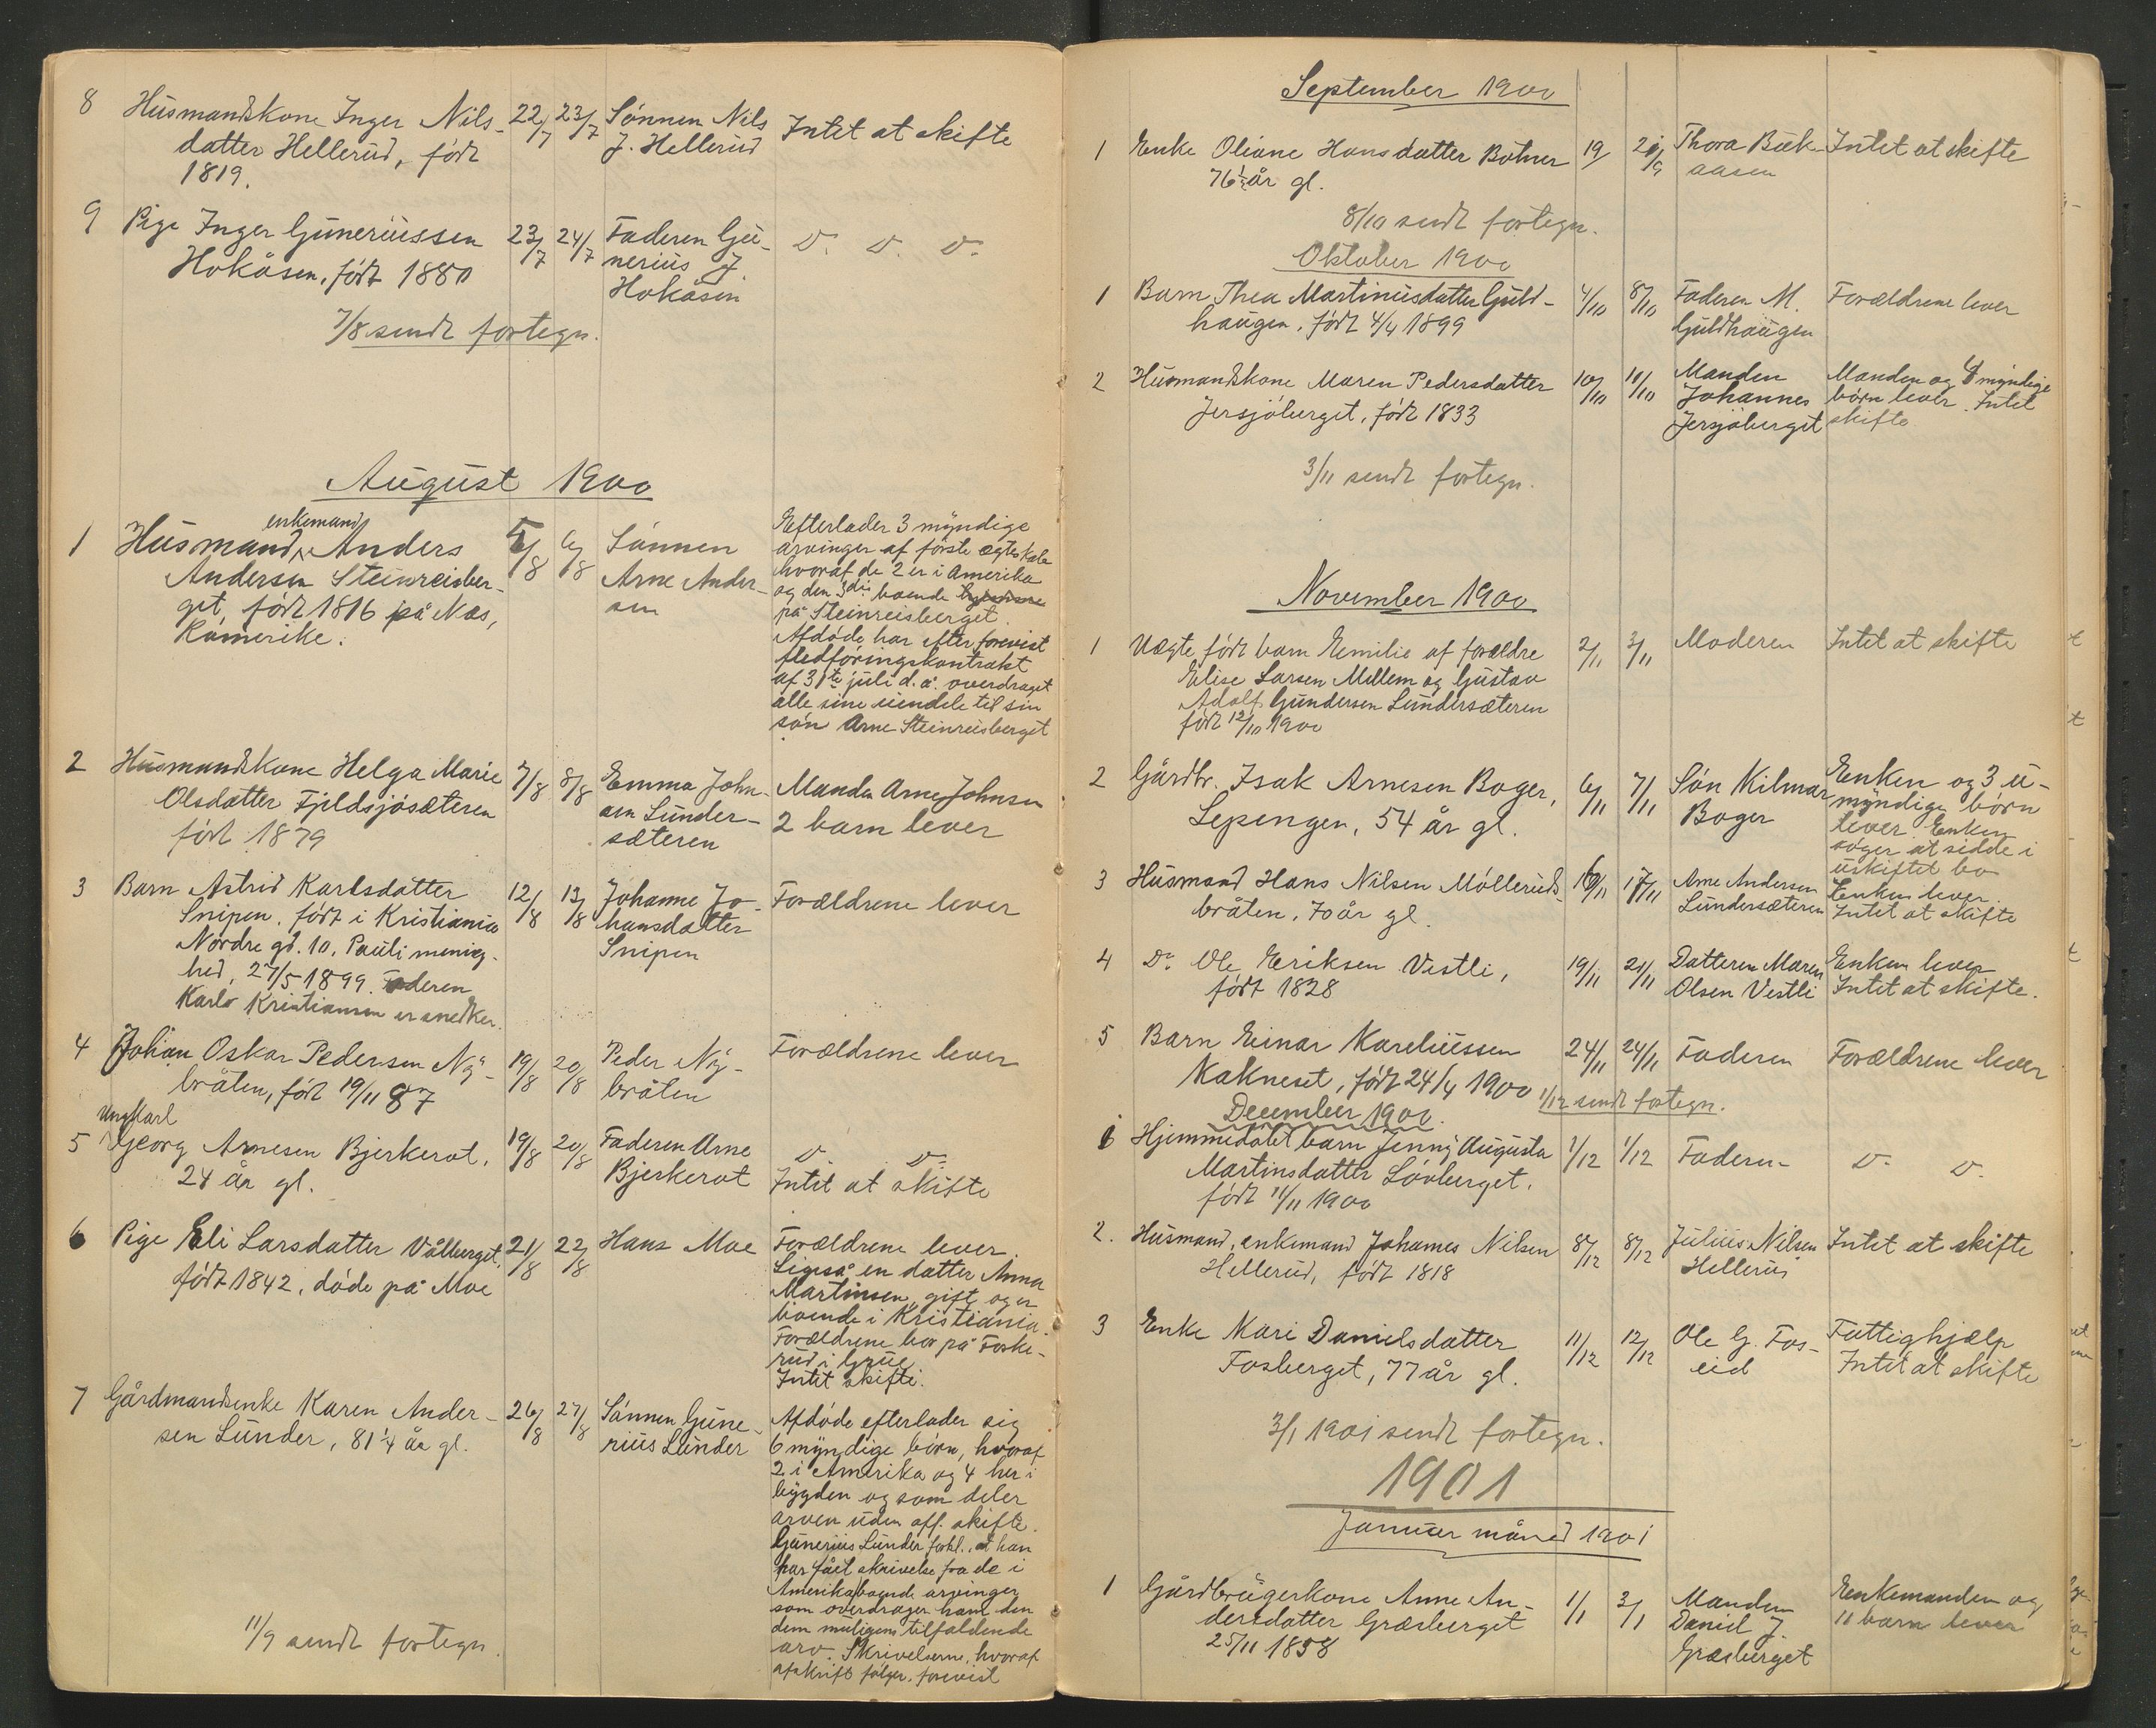 8 Husmandskone Inger Nils- 22/7 23/7 Sönnen Nils Intet at skifte
datter Hellerud, född J. Hellerud
1819.
9 Pige Inger Guneriussen 23/7 24/7 Faderen Gu- D. D. D.
Hokåsen, född 1880 nerius J.
Hokåsen
7/8 sendt fortegn.
August 1900
enkemand
1 Husmand, Anders 5/8 6/8 Sönnen
Andersen Steinreisber- Arne Ander-
get, född 1816 på Næs, sen
Romerike.
Efterlader 3 myndige
arvinger af förste ægteskab
hvoraf de 2 er i Amerika
og den 3die boende
på Steinreisberget.
Afdöde har efter forevist
fledföringskontrakt
af 31te juli d. å. overdraget
alle sine eiendele til sin
sön Arne Steinreisberget
2 Husmandskone Helga Marie 7/8 8/8 Emma John- Manden Arne Johnsen
Olsdatter Fjeldsjösæteren sen Lunder- 2 barn lever
född 1879 sæteren
3 Barn Astrid Karlsdatter 12/8 13/8 Johanne Jo- Forældrene lever
Snipen, född i Kristiania hansdatter
Nordre gd. 10, Pauli menig- Snipen
hed, 27/5 1899. Faderen
Karlo Kristiansen er snedker.
4 Johan Oskar Pedersen Ny- 19/8 20/8 Peder Ny- Forældrene lever
bråten, född 19/11 87 bråten
Ungkarl
5 Georg Arnesen Bjerkerot, 19/8 20/8 Faderen Arne D. D.
24 år gl. Bjerkerot Intet at skifte
6 Pige Eli Larsdatter Vålberget, 21/8 22/8 Hans Moe Forældrene lever.
född 1842, döde på Moe Ligeså en datter Anna
Martinsen, gift og er
boende i Kristiania.
Forældrene bor på Foske-
rud i Grue.
Intet skifte.
7 Gårdmandsenke Karen Ander- 26/8 27/8 Sönnen Gune- Afdöde efterlader sig
sen Lunder, 81 1/4 år gl. rius Lunder 6 myndige börn, hvoraf
2 i Amerika og 4 her i
bygden og som deler
arven uden off. skifte.
Gunerius Lunder forkl. at han
har fået skrivelse fra de i
Amerika boende arvinger
som overdrager ham den
dem muligens tilfaldende
arv. Skrivelserne, hvoraf
afskrift fölger, forevist
11/9 sendt fortegn.
September 1900
1 Enke Oliane Hansdatter Botner 19/ 21/9 Thora Bæk- Intet at skifte
76 1/2 år gl. aasen
8/10 sendt fortegn.
Oktober 1900
1 Barn Thea Martinusdatter Guld- 4/10 8/10 Faderen M. Forældrene lever
haugen, född 4/4 1899 Guldhaugen
2 Husmandskone Maren Pedersdatter 10/10 11/10 Manden Manden og 4 myndige
Jersjöberget, född 1833 Johannes börn lever. Intet
Jersjöberget skifte
3/11 sendt fortegn.
November 1900
1 Uægte född barn Emilie af forældre 2/11 3/11 Moderen Intet at skifte
Elise Larsen Mellem og Gustav
Adolf Gundersen Lundersæteren
född 12/10 1900
2 Gårdbr. Isak Arnesen Boger, 6/11 7/11 Sön Kilmar Enken og 3 u-
Lepengen, 54 år gl. Boger myndige börn
lever. Enken
söger at sidde i
uskiftet bo
3 Husmand Hans Nilsen Mölleruds- 16/11 17/11 Arne Andersen Enken lever.
bråten, 70 år gl. Lundersæteren Intet at skifte
4 Do. Ole Eriksen Vestli, 19/11 21/11 Datteren Maren Enken lever
född 1828 Olsen Vestli Intet at skifte.
5 Barn Einar Kareliussen 24/11 24/11 Faderen Forældrene lever
Kakneset, född 24/4 1900 1/12 sendt fortegn.
December 1900.
1 Hjemmedöbt barn Jenny Augusta 1/12 1/12 Faderen D. D.
Martinsdatter Lövberget,
född 11/11 1900
2. Husmand, enkemand Johannes Nilsen 8/12 8/12 Julius Nilsen Intet at skifte
Hellerud, född 1818 Hellerud
3 Enke Kari Danielsdatter 11/12 12/12 Ole G. Fos- Fattighjælp
Fosberget, 77 år gl. eid Intet at skifte
3/1 1901 sendt fortegn.
1901
Januar måned 1901
1 Gårdbrugerkone Anne An- 1/1 3/1 Manden Enkemanden og
dersdatter Græsberget Daniel J. 11 barn lever
25/11 1858 Græsberget